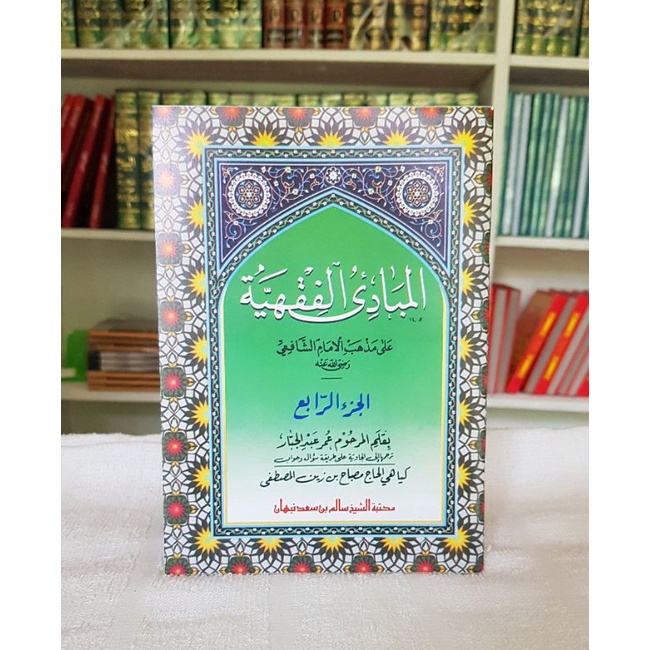 المبادئ الفقهية
١٤٠٥
على مذهب الامام الشافعي
رضي الله عنه
الجزء الرابع
بقلم المرحوم عمر عبد الجبار
ترجمها إلى الجاوية على طريقة سؤال وجواب
كياهي الحاج مصباح بن زين المصطفى
مكتبة الشيخ سالم بن سعد نبهان